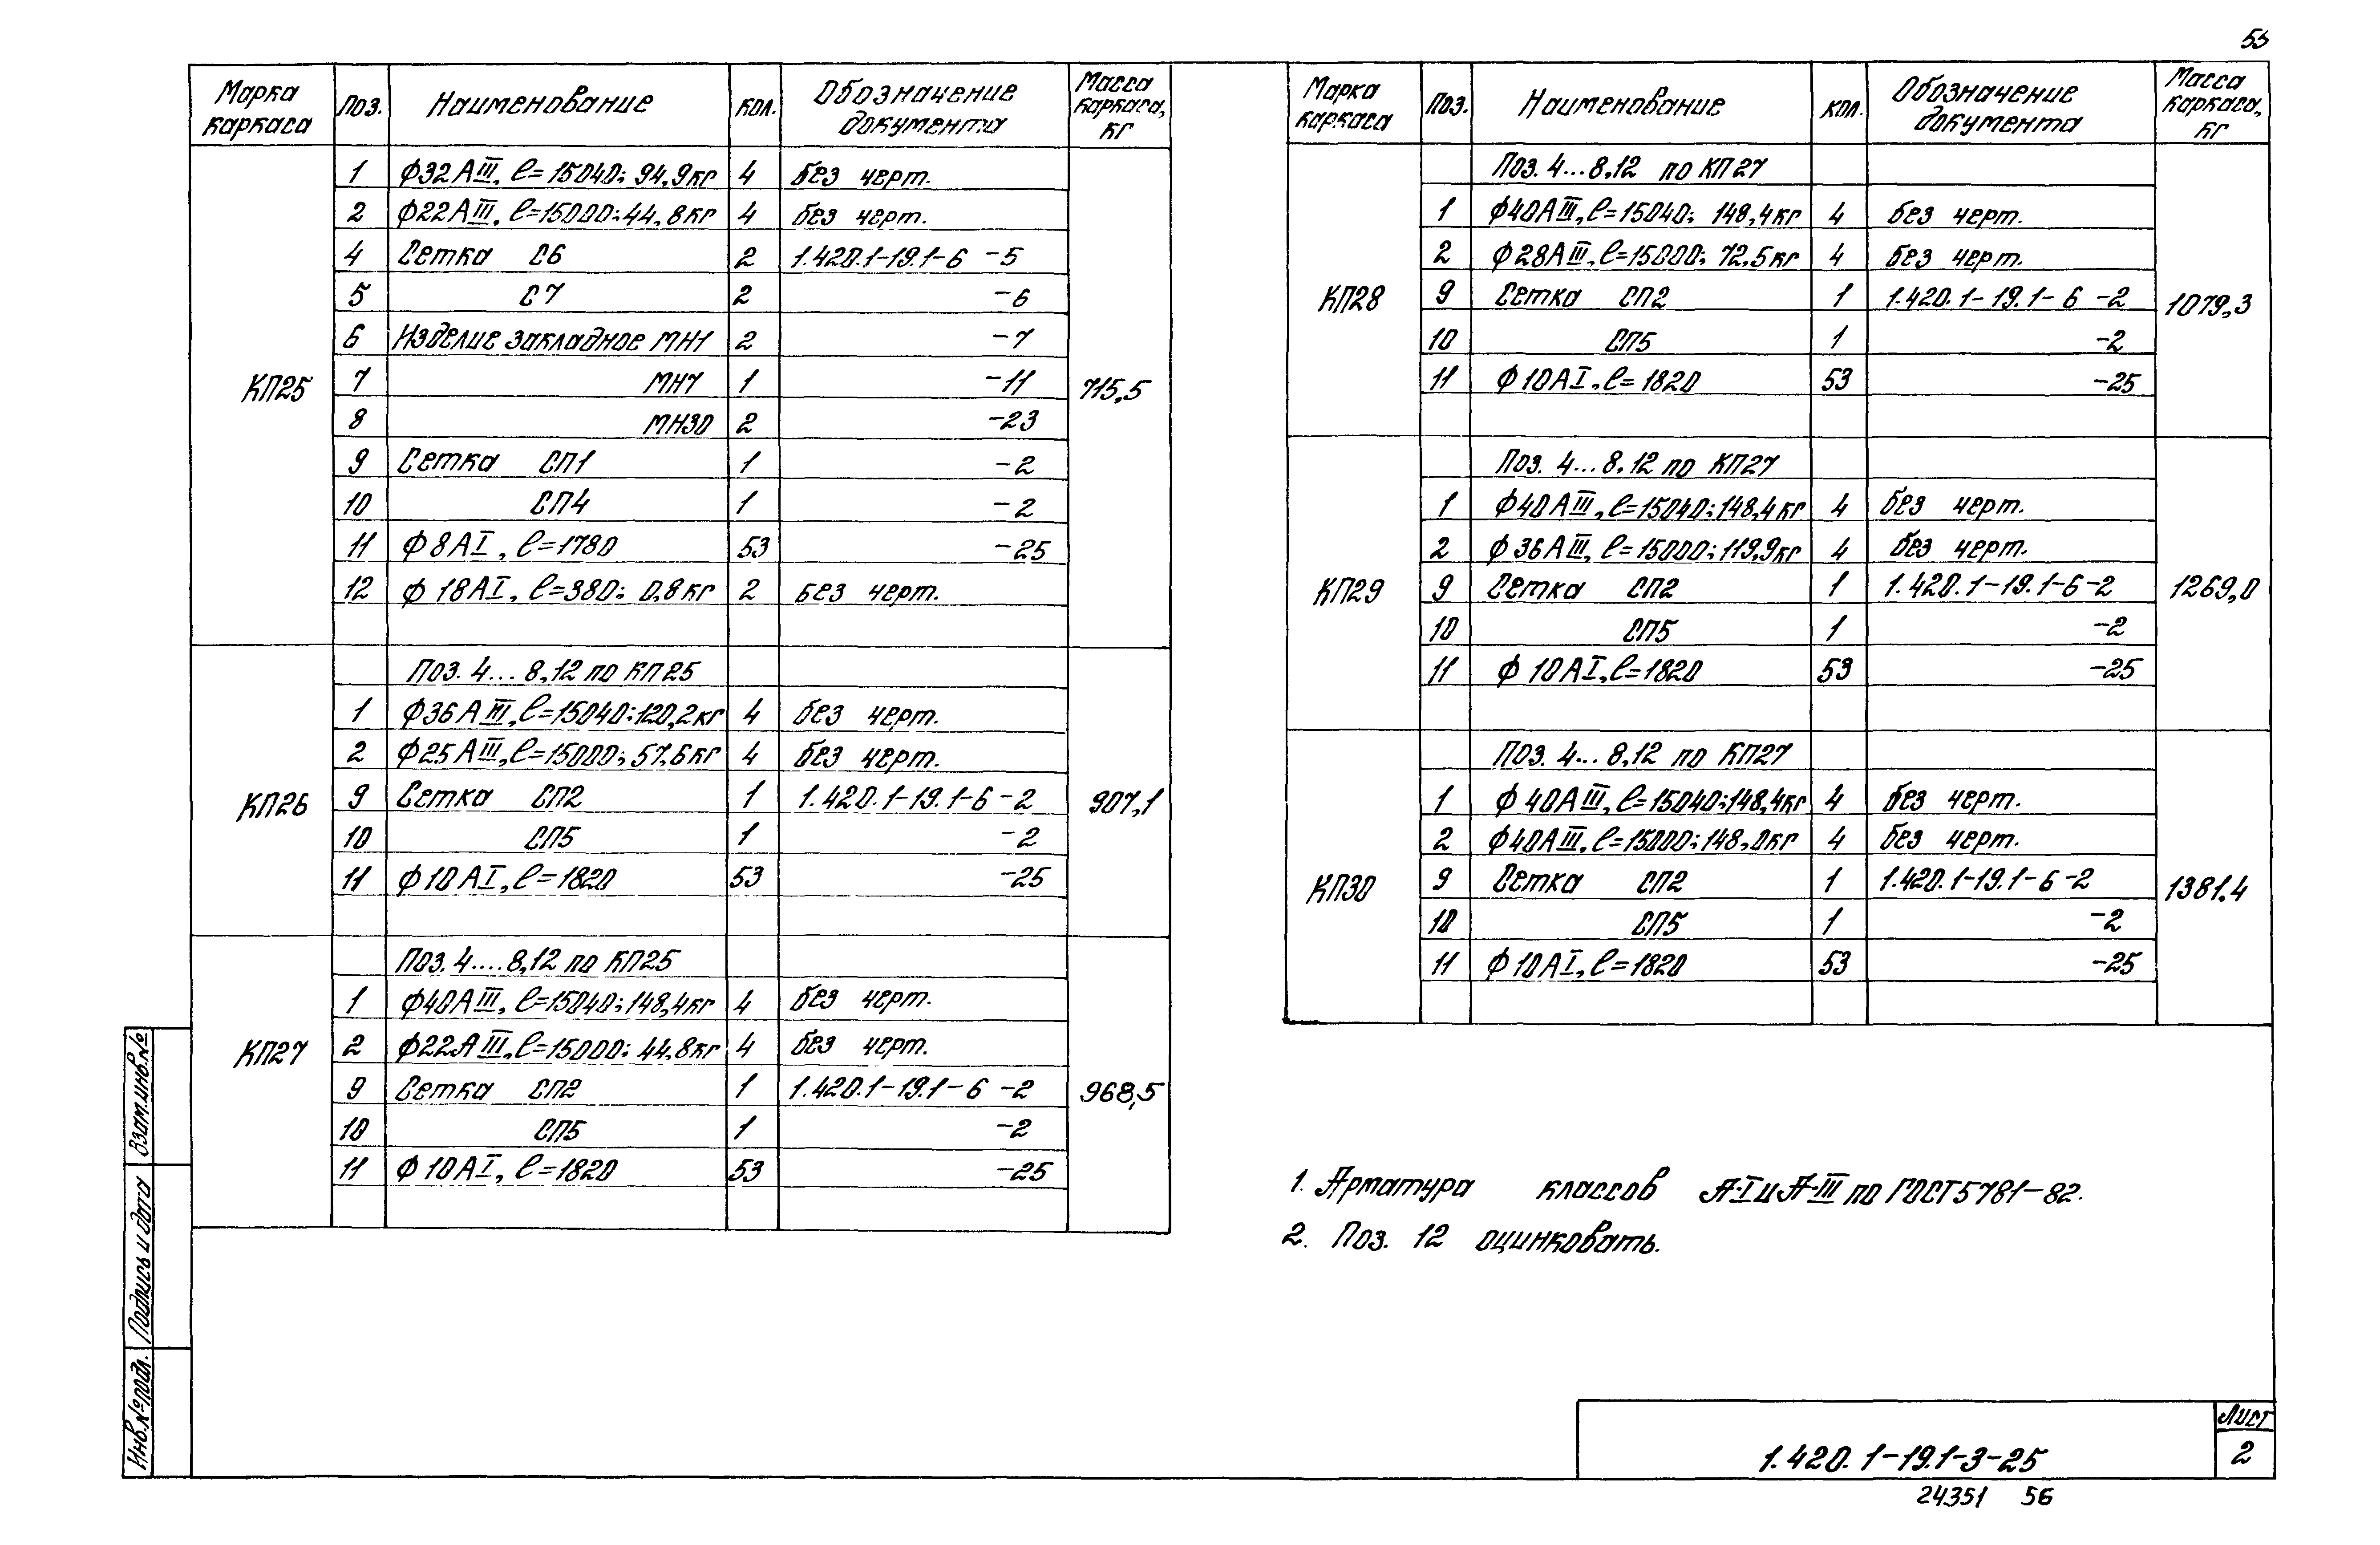 55
Марка каркаса Поз. Наименование Кол. Обозначение документа Масса каркаса, кг
КП25 715,5
1 Ф32АIII, ℓ=15040; 94,9кг 4 без черт.
2 Ф22АIII, ℓ=15000; 44,8кг 4 без черт.
4 Сетка С6 2 1.420.1-19.1-6 -5
5 С7 2 -6
6 Изделие закладное МН1 2 -7
7 МН7 1 -11
8 МН30 2 -23
9 Сетка СП1 1 -2
10 СП4 1 -2
11 Ф8АI, ℓ=1780 53 -25
12 Ф18АI, ℓ=380; 0,8кг 2 без черт.
КП26 907,1
Поз. 4... 8,12 по КП25
1 Ф36АIII, ℓ=15040; 120,2кг 4 без черт.
2 Ф25АIII, ℓ=15000; 57,6кг 4 без черт.
9 Сетка СП2 1 1.420.1-19.1-6-2
10 СП5 1 -2
11 Ф10АI, ℓ=1820 53 -25
КП27 968,5
Поз. 4.... 8,12 по КП25
1 Ф40АIII, ℓ=15040; 148,4кг 4 без черт.
2 Ф22АIII, ℓ=15000; 44,8кг 4 без черт.
9 Сетка СП2 1 1.420.1-19.1-6 -2
10 СП5 1 -2
11 Ф10АI, ℓ=1820 53 -25
Марка каркаса Поз. Наименование Кол. Обозначение документа Масса каркаса, кг
КП28 1079,3
Поз. 4...8,12 по КП27
1 Ф40АIII, ℓ=15040; 148,4кг 4 без черт.
2 Ф28АIII, ℓ=15000; 72,5кг 4 без черт.
9 Сетка СП2 1 1.420.1-19.1-6 -2
10 СП5 1 -2
11 Ф10АI, ℓ=1820 53 -25
КП29 1269,0
Поз. 4...8,12 по КП27
1 Ф40АIII, ℓ=15040; 148,4кг 4 без черт.
2 Ф36АIII, ℓ=15000; 119,9кг 4 без черт.
9 Сетка СП2 1 1.420.1-19.1-6-2
10 СП5 1 -2
11 Ф10АI, ℓ=1820 53 -25
КП30 1381.4
Поз. 4...8,12 по КП27
1 Ф40АIII, ℓ=15040; 148,4кг 4 без черт.
2 Ф40АIII, ℓ=15000; 148,0кг 4 без черт.
9 Сетка СП2 1 1.420.1-19.1-6-2
10 СП5 1 -2
11 Ф10АI, ℓ=1820 53 -25
1. Арматура классов А-I и А-III по ГОСТ 5781-82.
2. Поз. 12 оцинковать.
Инв.№ подл. Подпись и дата Взам.инв.№
1.420.1-19.1-3-25
Лист
2
24351 56